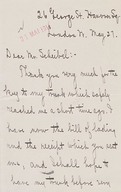 26 George St. Hanover Sq.
London W. May 27.
Dear Mr. Scheibel:-
Thank you very much for the
key to my trunk which safely
reached me a short time ago. I
have now the bill of lading
and the receipt which you sent
me, and shall hope to
have my trunk before very